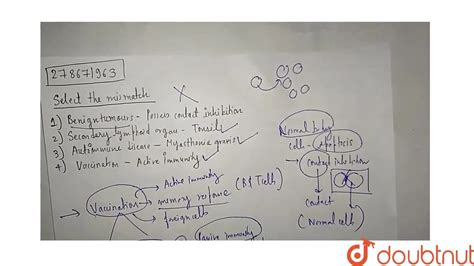 278671963
Select the mismatch
1) Benign tumours - Possess contact inhibition
2) Secondary lymphoid organ - Tonsils
3) Autoimmune disease - Myasthenia gravis
4) Vaccination - Active immunity
Normal body
cells - Apoptosis
contact inhibition
contact
(Normal cells)
Active immunity
Vaccination
memory response (B & T cells)
foreign cells
Passive immunity
doubtnut